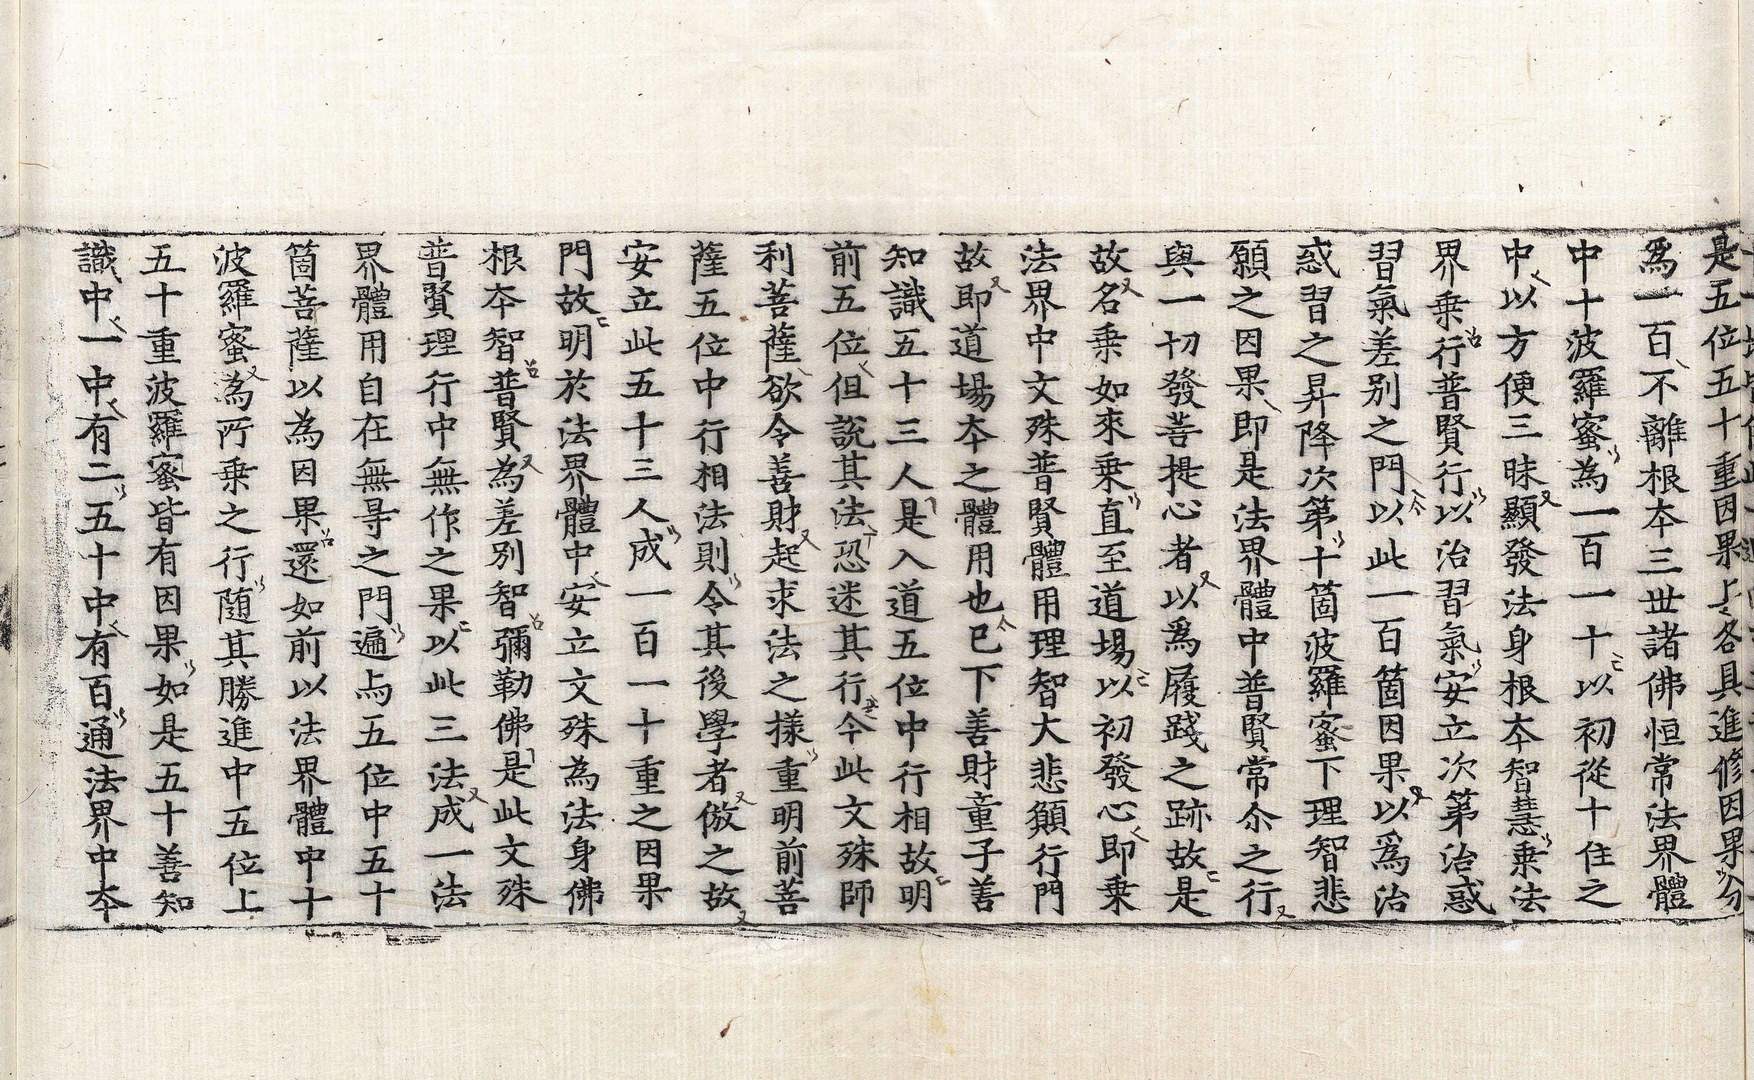 是五位五十重因果上各具進修因果分
爲一百不離根夲三世諸佛恒常法界體
中十波羅蜜為一百一十以初從十住之
中以方便三昧顯發法身根夲智慧乗法
界乗行普賢行以治習氣安立次第治惑
習氣差别之門以此一百箇因果以爲治
惑習之昇降次第十箇波羅蜜下理智悲
願之因果即是法界體中普賢常尒之行
與一切發菩提心者以爲履踐之跡故是
故名乗如來乗直至道場以初發心即乗
法界中文殊普賢體用理智大悲願行門
故即道場夲之體用也已下善財童子善
知識五十三人是入道五位中行相故明
前五位但說其法恐迷其行今此文殊師
利菩薩欲令善財起求法之樣重明前菩
薩五位中行相法則令其後學者倣之故
安立此五十三人成一百一十重之因果
門故明於法界體中安立文殊為法身佛
根夲智普賢為差別智彌勒佛是此文殊
普賢理行中無作之果以此三法成一法
界體用自在無㝵之門遍與五位中五十
箇菩薩以為因果還如前以法界體中十
波羅蜜為所乗之行随其勝進中五位上
五十重波羅蜜皆有因果如是五十善知
識中一中有二五十中有百通法界中夲